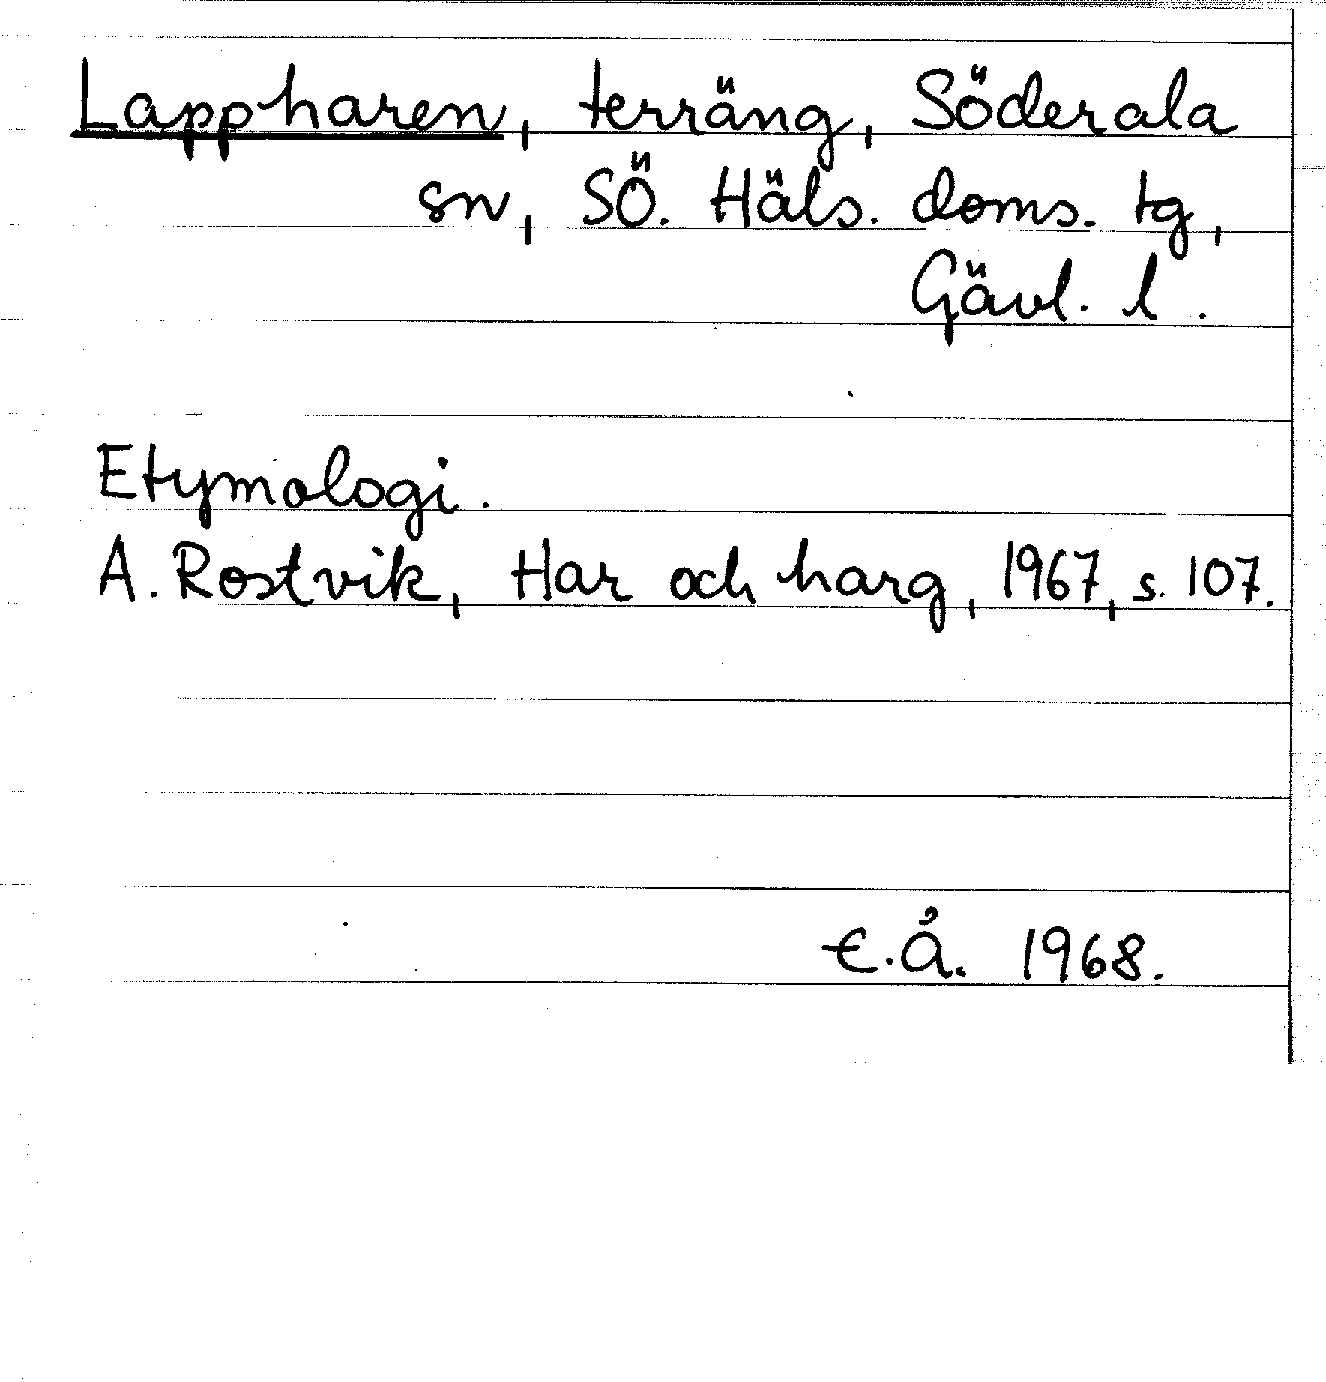 Lappharen, terräng, Söderala
sn, SÖ. Häls. doms. tg,
Gävl. l.
Etymologi.
A. Rostvik, Har och harg, 1967, s. 107.
E.Å. 1968.